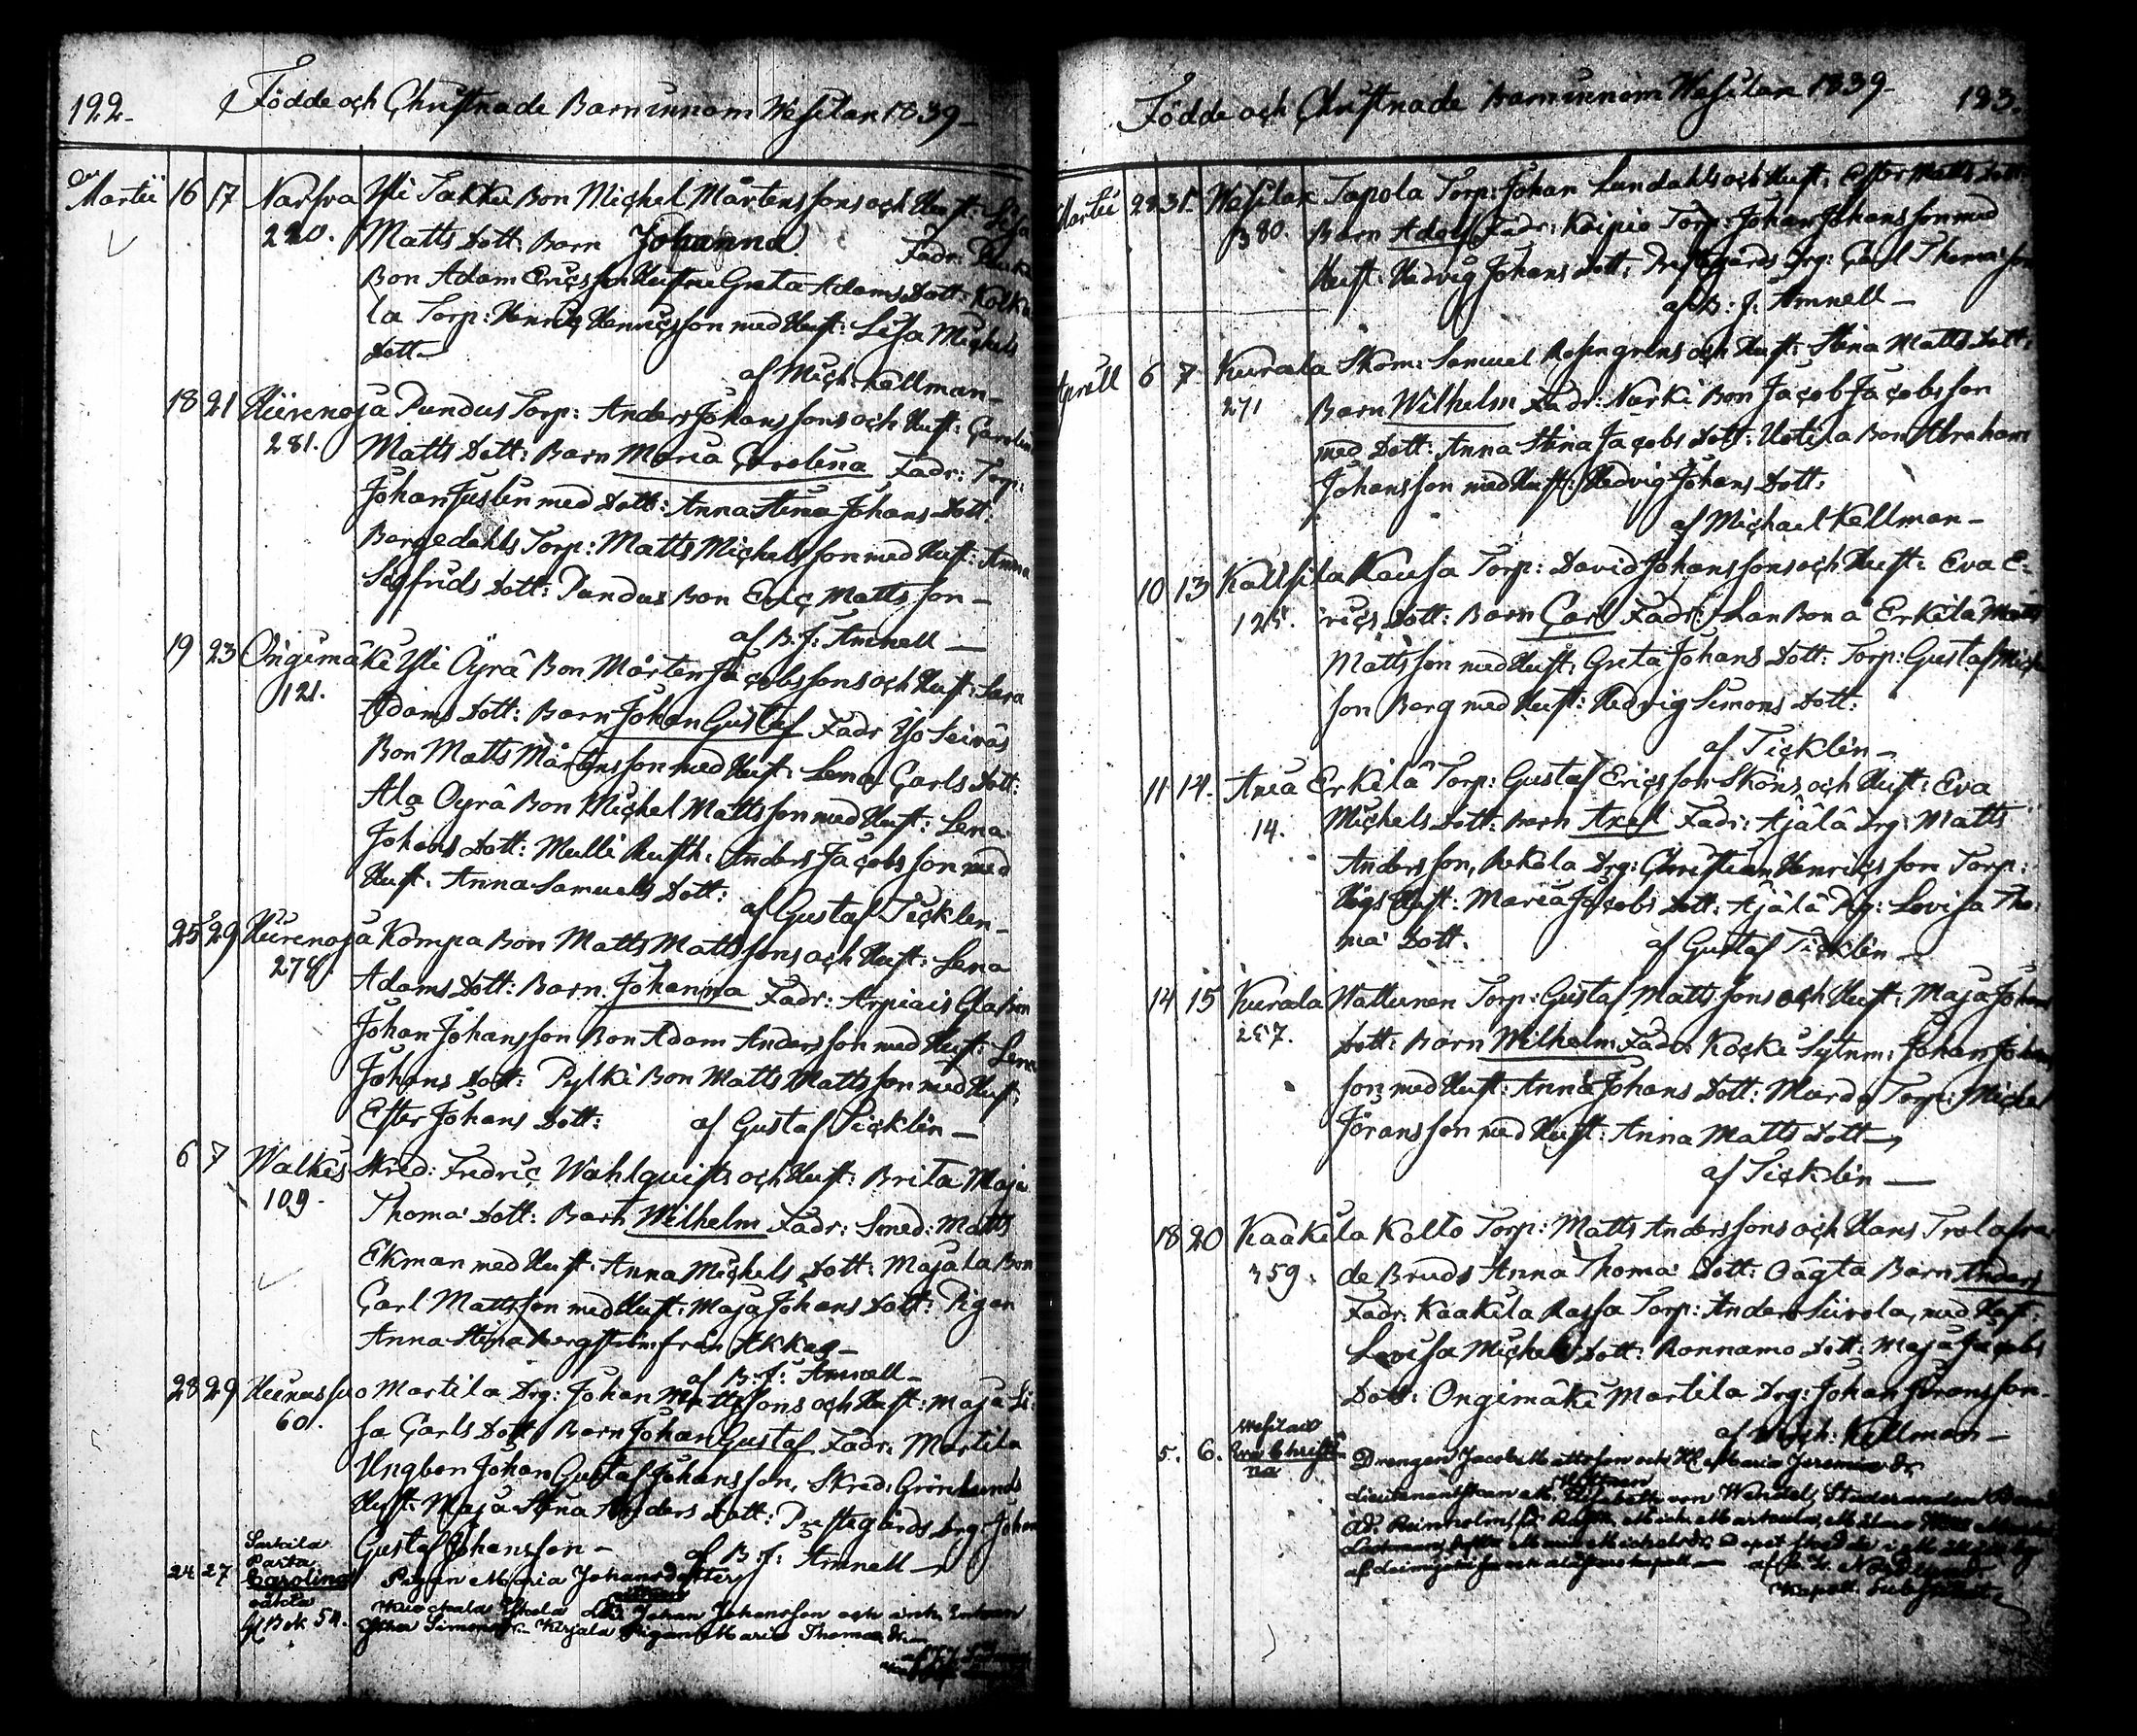 122.
Födde och Christnade Barn innom Wesilax 1839
Martii 16 17 Narfva Yli Takku Bon Michel Mårtenssons och Hust: Lisa
220. Matts Dott: Barn Johanna. Fadr:
Bon Adam Ericsson Hustru Greta Adams Dott: Kolku
la Torp: Henric Henricsson med Hust: Lisa Michels
Dott
af Mich: Kellman
18 21 Hiirenoja Pundus Torp: Anders Johanssons och Hust: Carolina
281. Matts Dott: Barn Maria Carolina Fadr: Torp:
Johan Juslin med Dott: Anna Stina Johans Dott:
Bergedahls Torp: Matts Michelsson med Hust: Anna
Sigfrids Dott: Pundus Bon Eric Mattsson
af B: J: Amnell
19 23 Ongimäki Yli Äyrä Bon Mårten Jacobssons och Hust: Sara
121. Adams Dott: Barn Johan Gustaf Fadr Iso Seiväs
Bon Matts Mårtensson med Hust: Lena Carls Dott:
Ala Äyrä Bon Michel Mattsson med Hust: Lena
Johans Dott: Mulli Rusth: Anders Jacobsson med
Hust: Anna Samuels Dott:
af Gustaf Ticklén
25 29 Hiirenoja Kompa Bon Matts Mattssons och Hust: Lena
278. Adams Dott: Barn Johanna Fadr: Arpiais
Johan Johansson Bon Adam Andersson med Hust: Lena
Johans Dott: Pylki Bon Matts Mattsson med Hust:
Ester Johans Dott: af Gustaf Ticklén
6 7 Walkis Skred: Fredric Wahlquists och Hust: Brita Maja
109. Thomæ Dott: Barn Wilhelm Fadr: Smed: Matts
Ekman med Hust: Anna Michels Dott: Majala Bon
Carl Mattsson med Hust: Maja Johans Dott: Pigan
Anna Stina Bergström från Akkas
af B: J: Amnell
28 29 Hinnasuo Martila Drg: Johan Mattssons och Hust: Maja Li
60. sa Carls Dott: Barn Johan Gustaf Fadr: Martila
Ungbon Johan Gustaf Johansson, Skred: Grönlunds
Hust: Maja Stina Anders Dott: Prestegårds Drg: Johan
Gustaf Johansson af B: J: Amnell
24 27 Sarkila Parta Carolina oäkta
Pigan Maria Johansdotter
Bok 54. Johan Johansson och
Simons Pigan Maria Thomæ dr.
Födde och Christnade Barn innom Wesilax 1839 123.
Martii 28 31 Wesilax Tapola Torp: Johan Lundahls och Hust: Ester Matts Dott:
380. Barn Adolf Fadr: Kaipio Torp: Johan Johansson med
Hust: Hedvig Johans Dott: Prestgårds Drg: Carl Thomasson
af B: J: Amnell
Aprill 6 7 Kurala Skom: Samuel Rosengrens och Hust: Stina Matts Dott:
271 Barn Wilhelm Fadr: Narki Bon Jacob Jacobsson
med Dott: Anna Stina Jacobs Dott: Uotila Bon Abraham
Johansson med Hust: Hedvig Johans Dott:
af Michael Kellman
10 13 Kallsila Kausa Torp: David Johanssons och Hust: Eva E-
125. rics Dott: Barn Carl Fadr: Bon å Erkilä Matts
Mattsson med Hust: Greta Johans Dott: Torp: Gustaf
son Berg med Hust: Hedvig Simons Dott:
af Ticklén
11 14. Ania Erkilä Torp: Gustaf Ericsson Sköns och Hust: Eva
14. Michels Dott: Barn Axel Fadr: Äjälä Drg: Matts
Andersson, Rekola Drg: Christian Henricsson Torp:
Högs Hust: Maria Jacobs Dott: Äjälä Pig: Lovisa Tho-
mæ Dott: af Gustaf Ticklén
14 15 Kurala Wattunen Torp: Gustaf Mattssons och Hust: Maja Johans
257. Dott: Barn Wilhelm Fadr: Kocki Sytnm: Johan Johans
son med Hust: Anna Johans Dott: Murdo Torp: Michel
Jöransson med Hust: Anna Matts Dott
af Ticklén
18 20 Kaakila Kolto Torp: Matts Anderssons och Hans Trolofva
359. de Bruds Anna Thomæ Dott: Oägta Barn Anders
Fadr: Kaakila Rassa Torp: Anders Siivola, med Hust:
Lovisa Michels Dott: Ronnamo Dott: Maja Jacobs
Dott: Ongimäki Martila Drg: Johan Jöransson
af Mich: Kellman
5. 6. Wesilax Eva Christina Drengen Jacob Mattsson och H. Maria Jeremiæ dr.